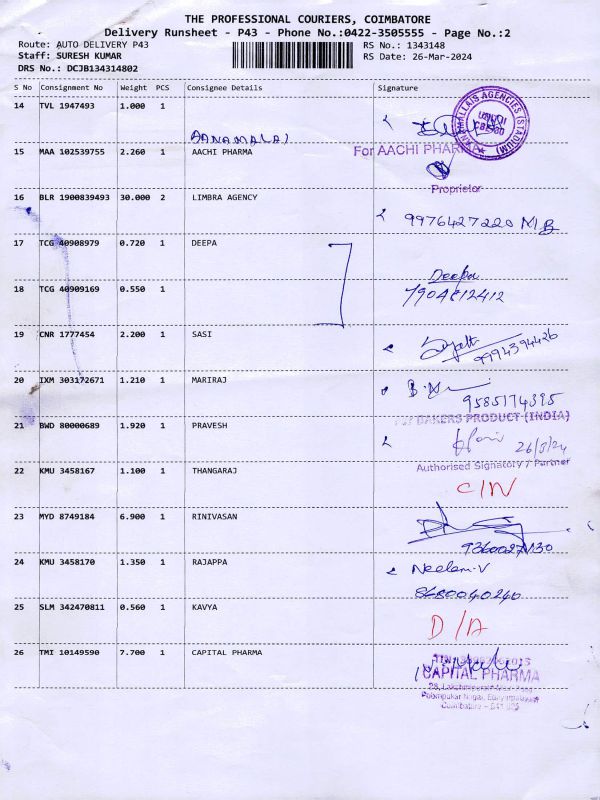 THE PROFESSIONAL COURIERS, COIMBATORE
Delivery Runsheet - P43 - Phone No.:0422-3505555 - Page No.:2
Route: AUTO DELIVERY P43 RS No.: 1343148
Staff: SURESH KUMAR RS Date: 26-Mar-2024
DRS No.: DCJB134314802
S No Consignment No Weight PCS Consignee Details Signature
14 TVL 1947493 1.000 1
AANAMALAI
15 MAA 102539755 2.260 1 AACHI PHARMA For AACHI PHARMA
Proprietor
16 BLR 1900839493 30.000 2 LIMBRA AGENCY
9976427220 M/B
17 TCG 40908979 0.720 1 DEEPA
Deepa
18 TCG 40909169 0.550 1
19 CNR 1777454 2.200 1 SASI
9994394426
20 IXM 303172671 1.210 1 MARIRAJ
9585174395
BAKERS PRODUCT (INDIA)
21 BWD 80000689 1.920 1 PRAVESH
26/3/24
Authorised Signatory / Partner
22 KMU 3458167 1.100 1 THANGARAJ
C/N
23 MYD 8749184 6.900 1 RINIVASAN
24 KMU 3458170 1.350 1 RAJAPPA Neelam.V
25 SLM 342470811 0.560 1 KAVYA
D/A
26 TMI 10149590 7.700 1 CAPITAL PHARMA
CAPITAL PHARMA